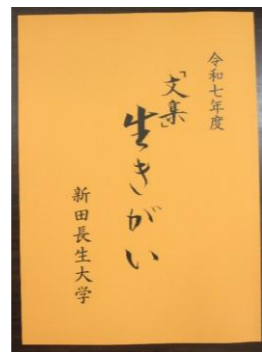 令和七年度
「文集」
生きがい
新田長生大学